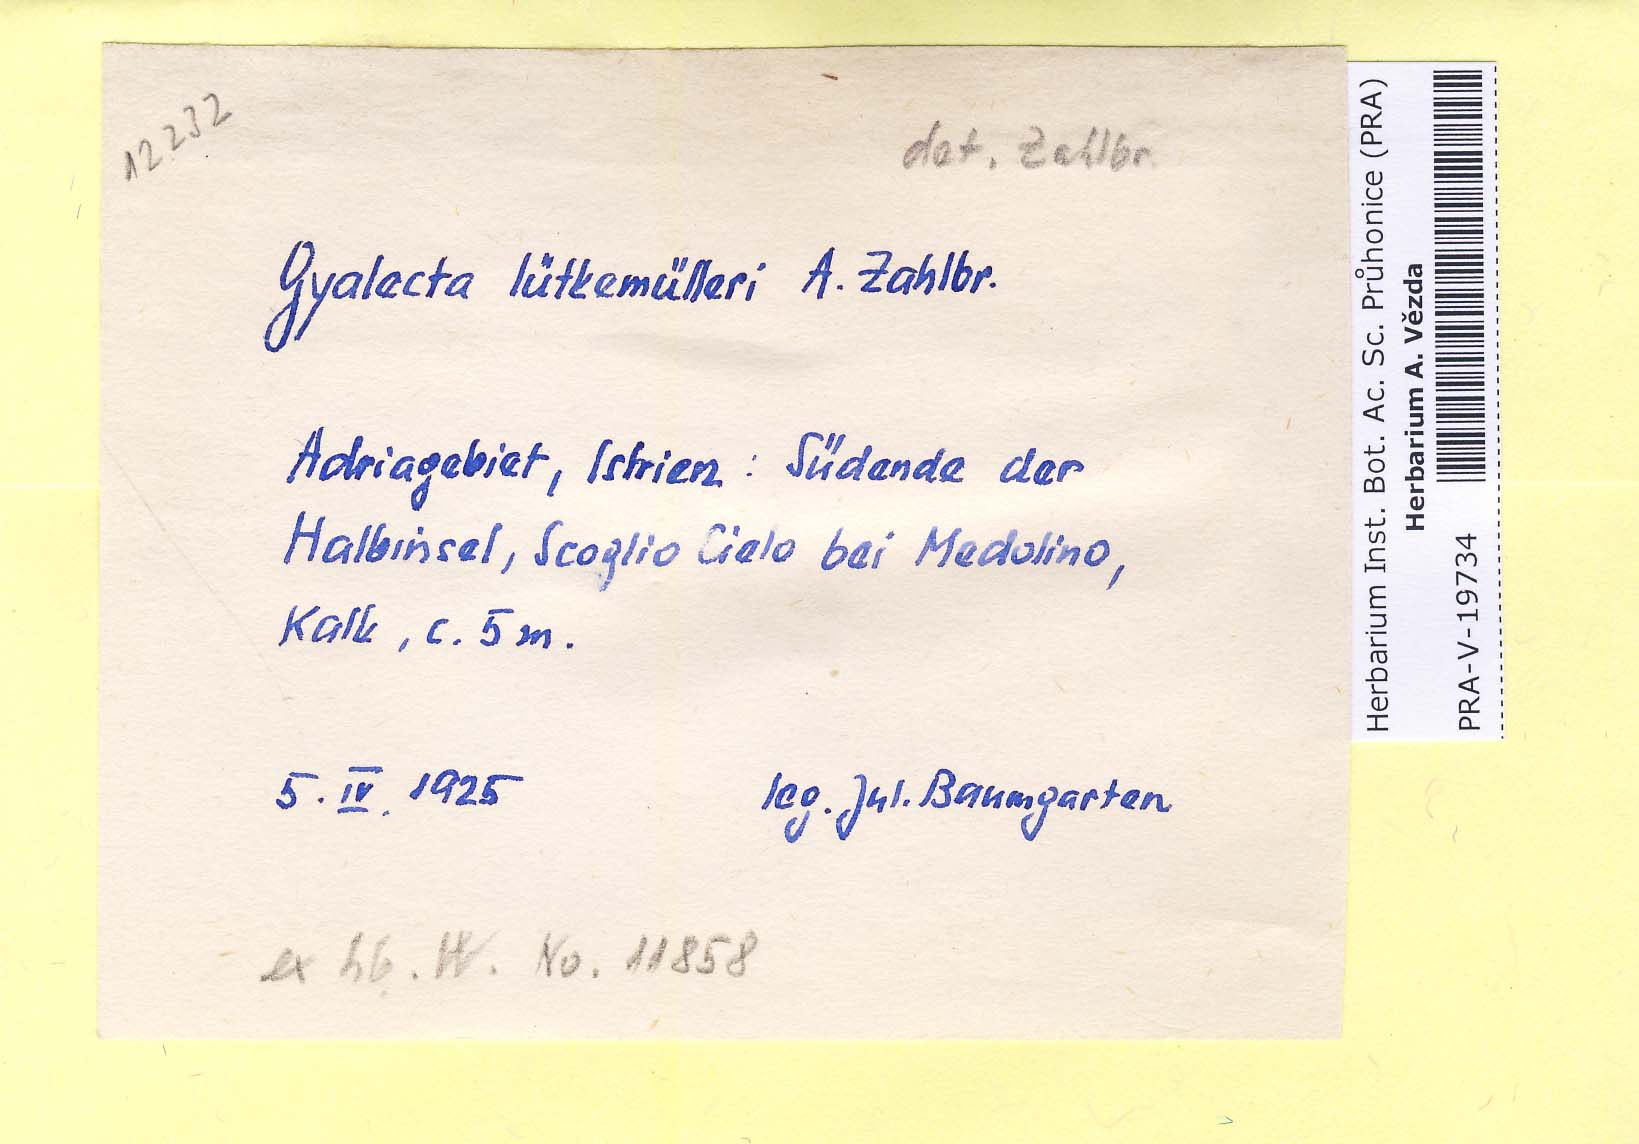 12232
det. Zahlbr.
Gyalecta lütkemülleri A. Zahlbr.
Adriagebiet, Istrien : Südende der
Halbinsel, Scoglio Cielo bei Medolino,
Kalk, c. 5 m.
5. IV. 1925
leg. Jul. Baumgarten
ex hb. W. No. 11858
Herbarium Inst. Bot. Ac. Sc. Průhonice (PRA)
Herbarium A. Vězda
PRA-V-19734